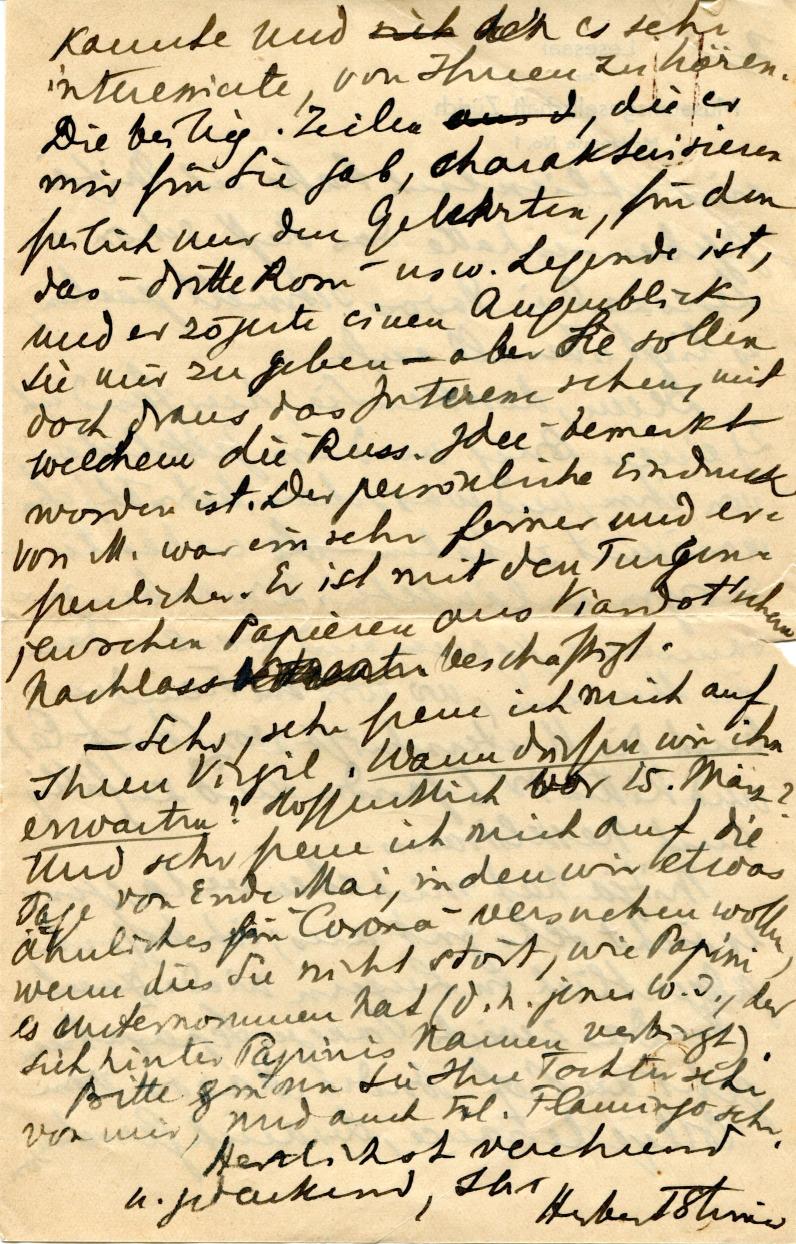 kannte und es sehr
interessirte, von Ihnen zu hören.
Die beilieg. Zeilen aus d, die er
mir für Sie gab, charakterisieren
freilich nur den Gelehrten, für den
das "dritte Rom" usw. Legende ist,
und er zögerte einen Augenblick,
sie mir zu geben – aber Sie sollen
doch draus das Interesse sehen, mit
welchem die "Russ. Idee" bemerkt
worden ist. Der persönliche Eindruck
von M. war ein sehr feiner und er-
freulicher. Er ist mit den Turgen-
jewschen Papieren aus Viardot'schem
Nachlass beschäftigt.
– Sehr, sehr freue ich mich auf
Ihren Virgil. Wann dürfen wir ihn
erwarten? Hoffentlich vor 15. März?
Und sehr freue ich mich auf die
Tage von Ende Mai, in den wir etwas
ähnliches für "Corona" versuchen wollen,
wenn dies Sie nicht stört, wie Papini
es unternommen hat (d. h. jener W. I., der
sich hinter Papinis Namen verbirgt).
Bitte grüssen Sie Ihre Tochter sehr
von mir, und auch Frl. Flamingo sehr.
Herzlichst verehrend
u. gedenkend, Ihr
Herbert Steiner